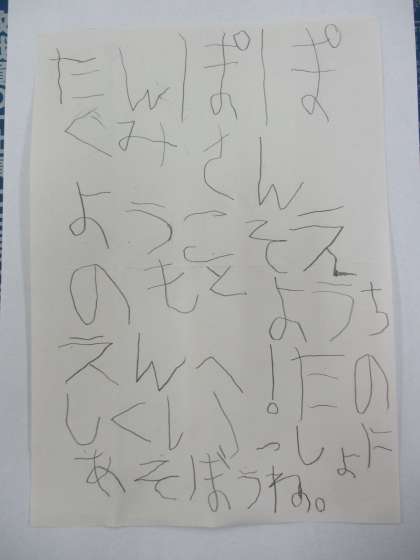 たんぽぽ
ぐみさん
ようこそえ
のもとようち
えんへ!たの
しくいっしょに
あそぼうね。